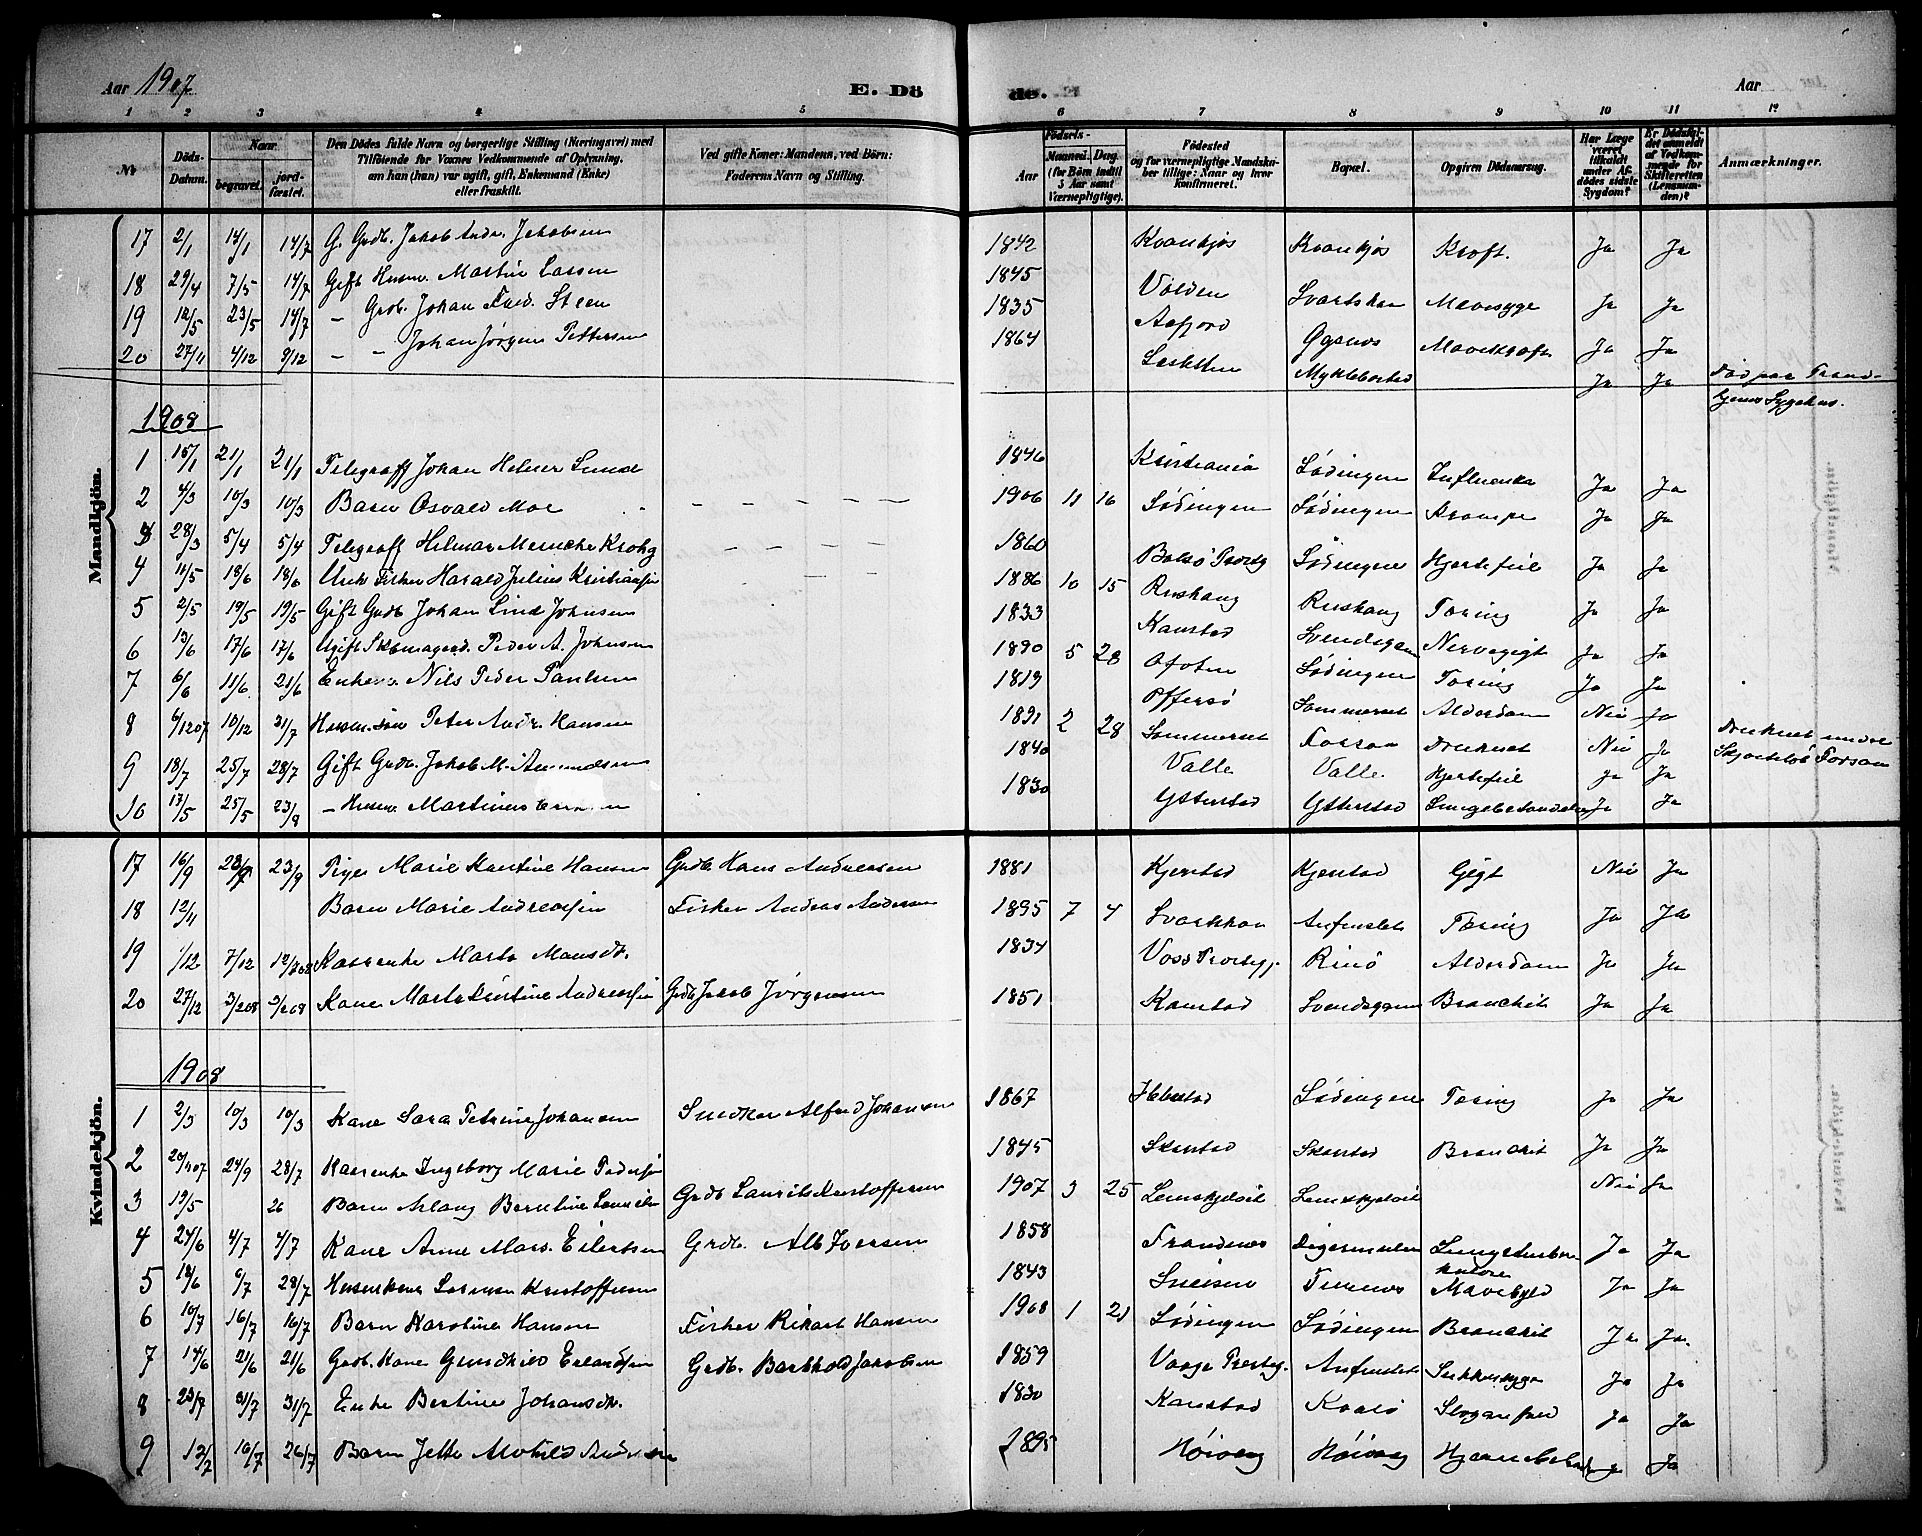 Aar 1907 E. Dö de. Aar
1 2 3 4 5 6 7 8 9 10 11 12
No. Döds-Datum. Naar begravet. jordfæstet. Den Dödes fulde Navn og borgerlige Stilling (Næringsvei) med Tilföiende for Voxnes Vedkommende af Oplysning, om han (hun) var ugift, gift, Enkemand (Enke) eller fraskilt. Ved gifte Koner: Mandens, ved Börn: Faderens Navn og Stilling. Födsels- Aar Maaned. Dag. (for Börn indtil 5 Aar samt Værnepligtige). Födested og for værnepligtige Mandskaber tillige: Naar og hvor konfirmeret. Bopæl. Opgiven Dödsaarsag. Har Læge været tilkaldt under Afdödes sidste Sygdom? Er Dödsfaldet anmeldt af Vedkommende for Skifteretten (Lensmanden)? Anmærkninger.
Mandkjön.
17 2/1 14/1 14/7 G. Grdb. Jakob Andr. Jakobsen 1842 Kvankjos Kvankjos Kræft. Ja Ja
18 29/4 7/5 14/7 Gift Husm. Martin Larsen 1845 Volden Svartskar Mavesyge Ja Ja
19 12/5 23/5 14/7 – Grdb. Johan Fred. Steen 1835 Aafjord Øgsnes Mavekræft Ja Ja
20 27/11 4/12 9/12 – – Johan Jørgen Pettersen 1864 Myklebostad Ja Ja Død paa Trondhjems Sygehus.
1908
1 15/1 21/1 21/1 Telegraff Johan Helmer Lund 1846 Kristiania Lødingen Influenza Ja Ja
2 4/3 10/3 10/3 Barn Osvald Moe – – – – 1906 11 16 Lødingen Lødingen Krampe Ja Ja
3 28/3 5/4 5/4 Telegraff Hilmar Meincke Krohg – – – – 1860 Bolsø Prestg Lødingen Hjertefeil Ja Ja
4 11/5 18/6 18/6 Fisker Harald Julius Kristiansen 1886 10 15 Rinskaug Rinskaug Tæring Ja Ja
5 2/5 19/5 19/5 Gift Grdb Johan Lind Johnsen 1833 Kanstad Svendsgam Nervegigt Ja Ja
6 13/6 17/6 17/6 Ugift Skomagerd. Peder A. Johnsen 1890 5 28 Ofoten Lødingen Tæring Ja Ja
7 6/6 11/6 21/6 Enkem. Nils Peder Paulsen 1819 Offersø Sommerset Alderdom Nei Ja
8 6/12 07 10/12 31/7 Husm. søn Peter Andr. Hansen 1891 2 28 Sommerset Forsan Druknet Nei Ja Druknet under
9 18/7 25/7 28/7 Gift Grdb. Jakob M. Amundsen 1840 Valle Valle Hjertefeil Ja Ja Forsan
10 17/5 25/5 23/8 – Husm. Martinus 1830 Ytterstad Ytterstad Lungebetændelse Ja Ja
Kvindekjön.
17 16/9 23/9 23/9 Pige Marie Kantine Hansen Grdb Hans Andreassen 1881 Kjerstad Kjerstad Gigt Nei Ja
18 12/11 Barn Marie Andreassen Fisker Andreas Andersen 1895 7 4 Svartskar Anfinslet Tæring Ja Ja
19 1/12 7/12 Kaarenke Marta Monsdt. 1834 Voss Prestegj. Rinø Alderdom Ja Ja
20 27/12 3/2 08 3/2 08 Kone Marta Kristine Andreassen Grdb Jakob Jørgensen 1851 Kanstad Svendsgam Bronchit Ja Ja
1908
1 2/3 10/3 10/3 Kone Sara Petrine Johansen Snedker Alfred Johansen 1867 Lødingen Tæring Ja Ja
2 24/9 28/7 Kaarenke Ingeborg Marie Pedersen 1845 Skarstad Skarstad Bronchit Ja Ja
3 19/5 26 Barn Aslaug Berntine Laurits Grdb Laurits Kristoffersen 1907 3 25 Nei Ja
4 24/6 4/7 4/7 Kone Anne Marg. Eilertsen Grdb. Alb Iversen 1858 Trandenes Digermulen Lungetuberkulose Ja Ja
5 18/6 6/7 28/7 Husenken Lorense Kristoffersen 1843 Tinnenes Ja Ja
6 10/7 16/7 16/7 Barn Karoline Hansen Fisker Rikart Hansen 1908 1 21 Lødingen Lødingen Bronchit Ja Ja.
7 14/6 21/6 21/6 Grdb. Kone Gunhild Erlandsen Grdb. Barthold Jakobsen 1859 Vaage Prestg. Anfinslet Sukkersyge Ja Ja
8 23/7 31/7 31/7 Enke Bertine Johansdt. 1830 Kanstad Kvalø Slaganfald Ja Ja
9 12/7 16/7 26/7 Barn Jette Alvhild 1895 Høivaag Høivaag Ja